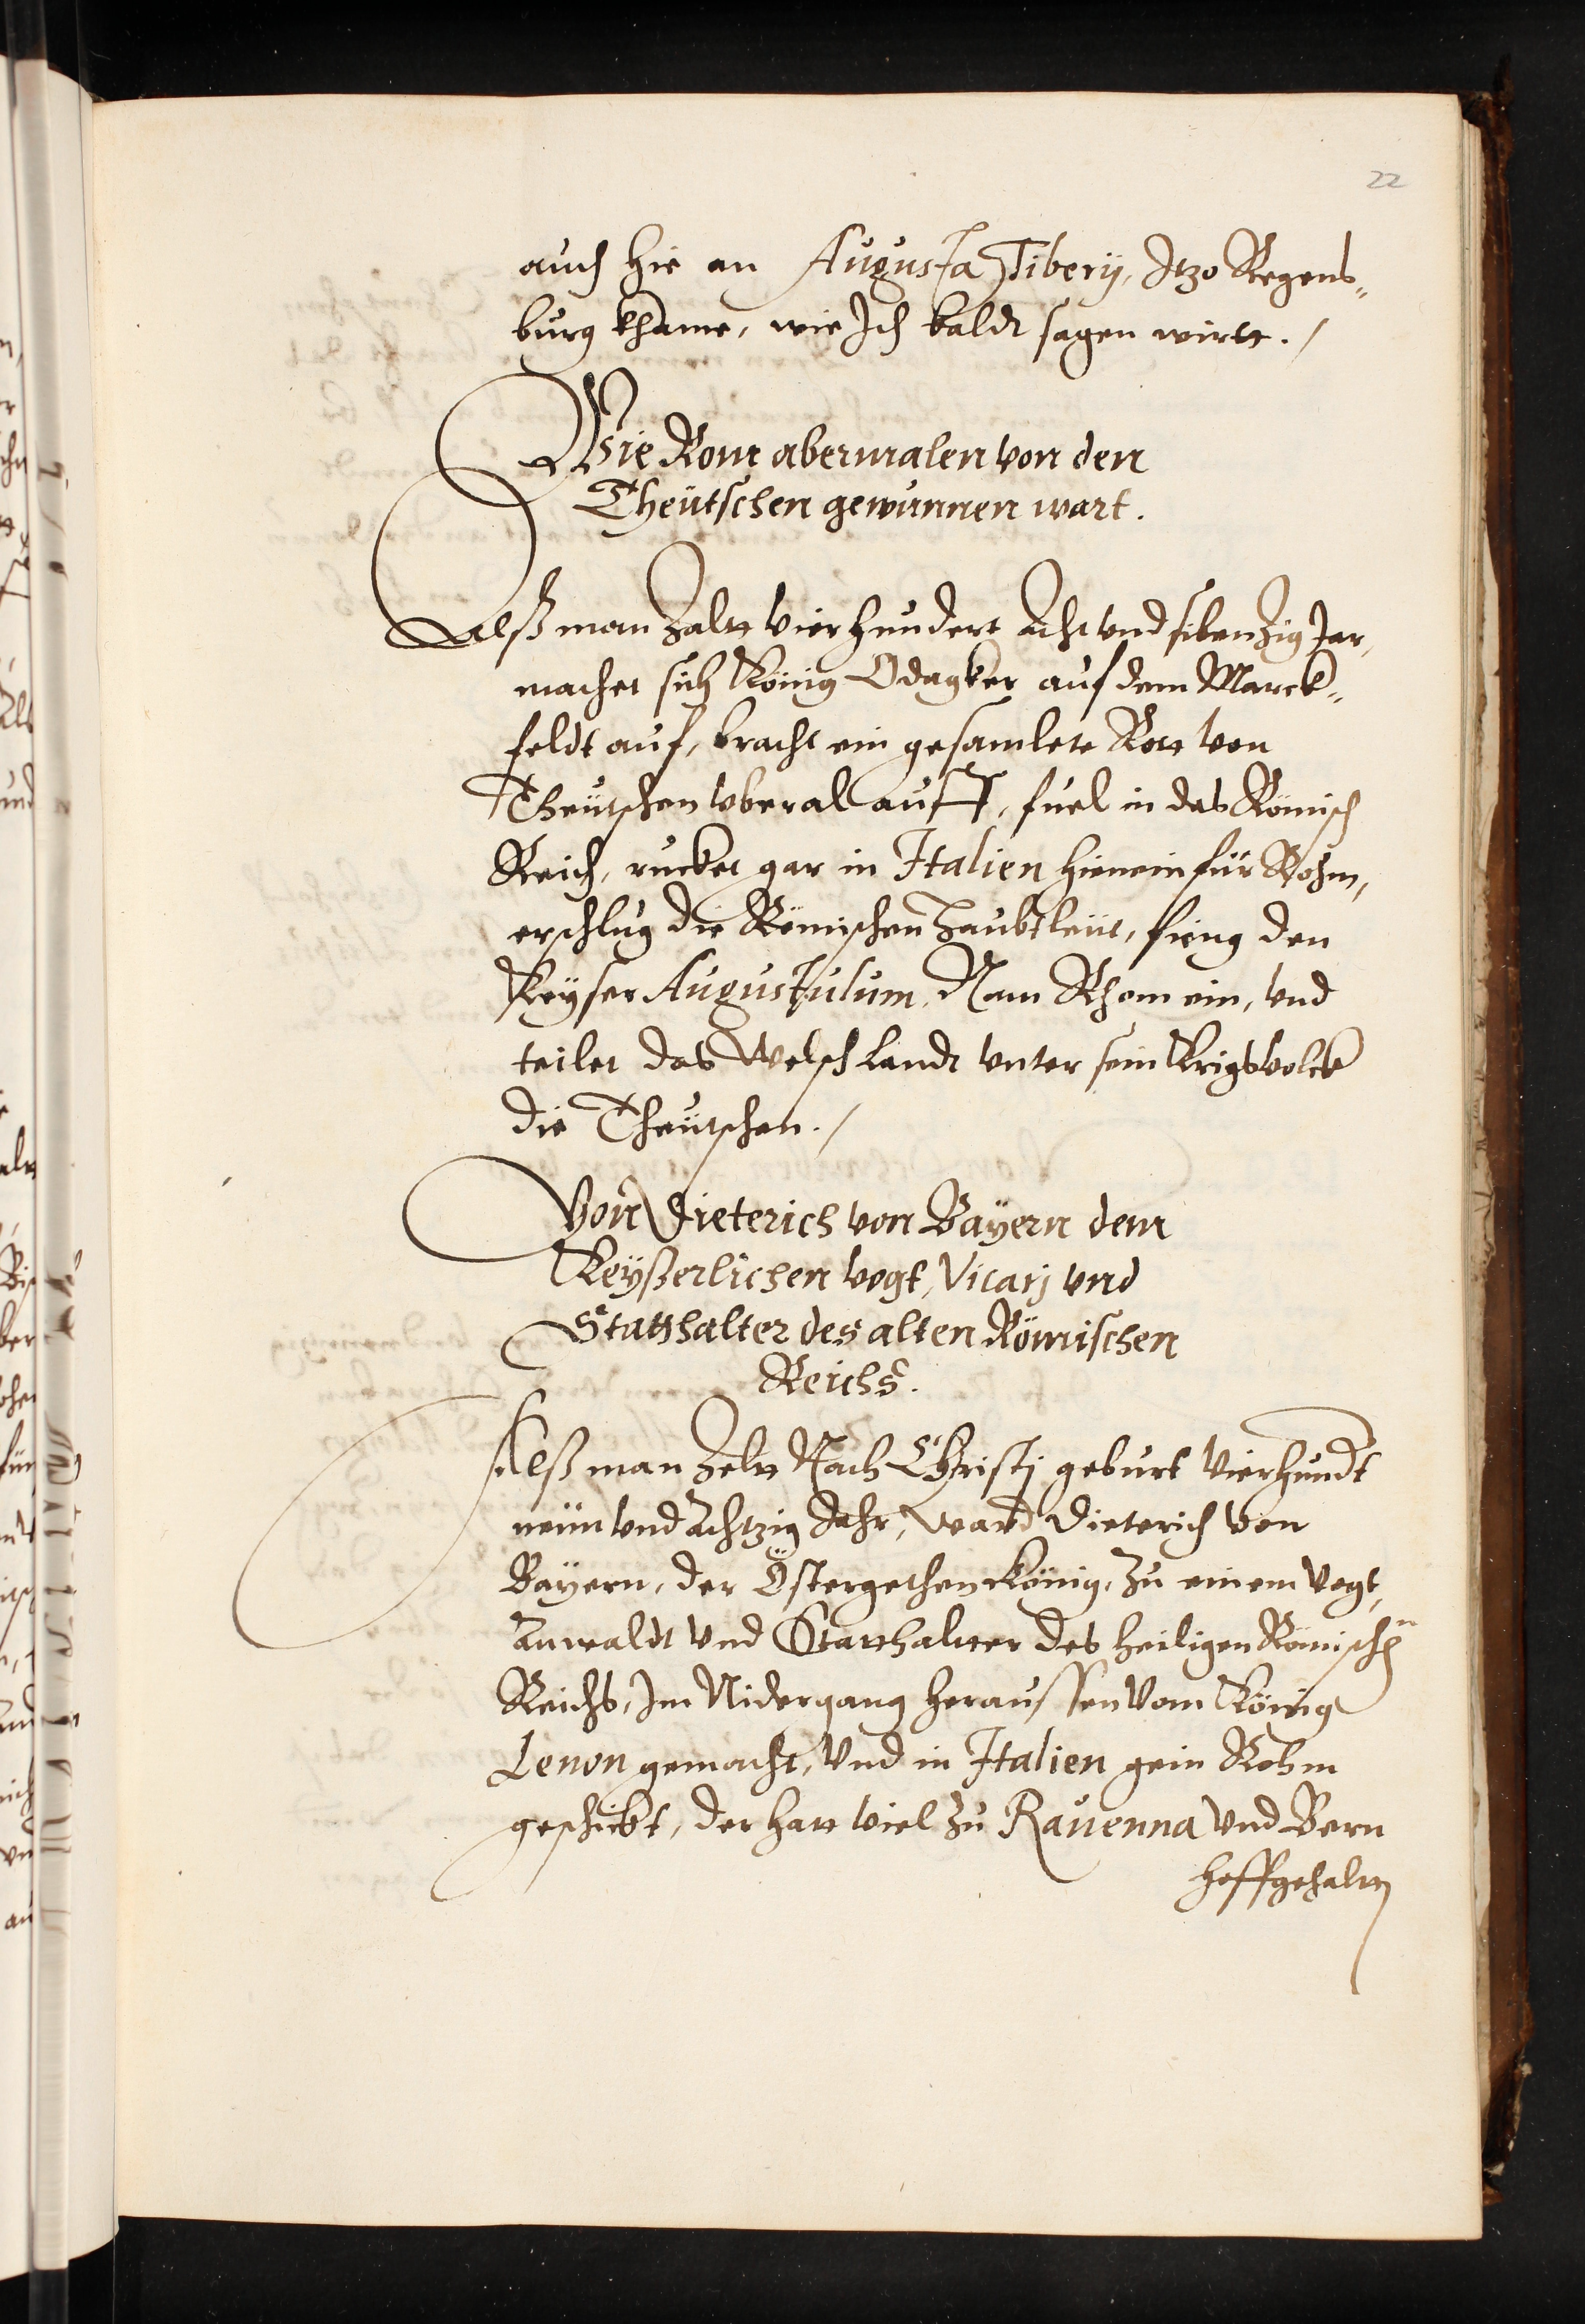 22
auch hie an Augusta Tiberÿ, Itzo Regens„
burg khame, wie Ich baldt sagen wirtt. /
Wie Rom abermalen von den
Theütschen gewunnen wart.
Alß man Zaltt Vierhundert Acht vnd sibenzig Jar,
machet sich König Odagker auf dem Marck„
feldt auf, bracht ein gesamlete Rott von
Theütschen vberal auff, fuel in das Römisch
Reich, rucket gar in Italien hienein für Rohm,
erschlug die Römischen Haubtleüt, fieng den
Keyser Augustulum, Nam Rhom ein, vnd
teilet das Welschlandt vnter sein Krigsvolck
die Theütschen. /
Von Dieterich von Bayern dem
Keyßerlichen Vogt, Vicarj vnd
Statthalter des alten Römischen
Reichs.
Alß man Zeltt Nach Christj geburt Vierhundt
neün vnd Achtzig Jahr, ward Dieterich von
Bayern, der Ostergothen König, zu einem Vogt,
Anwaldt vnd Statthaltter des heiligen Römischen
Reichs, Im Nidergang heraussen vom König
Zenon gemacht, Vnd in Italien gein Rohm
geschickt, der hatt viel zu Rauenna Vnd Bern
hoffgehaltn